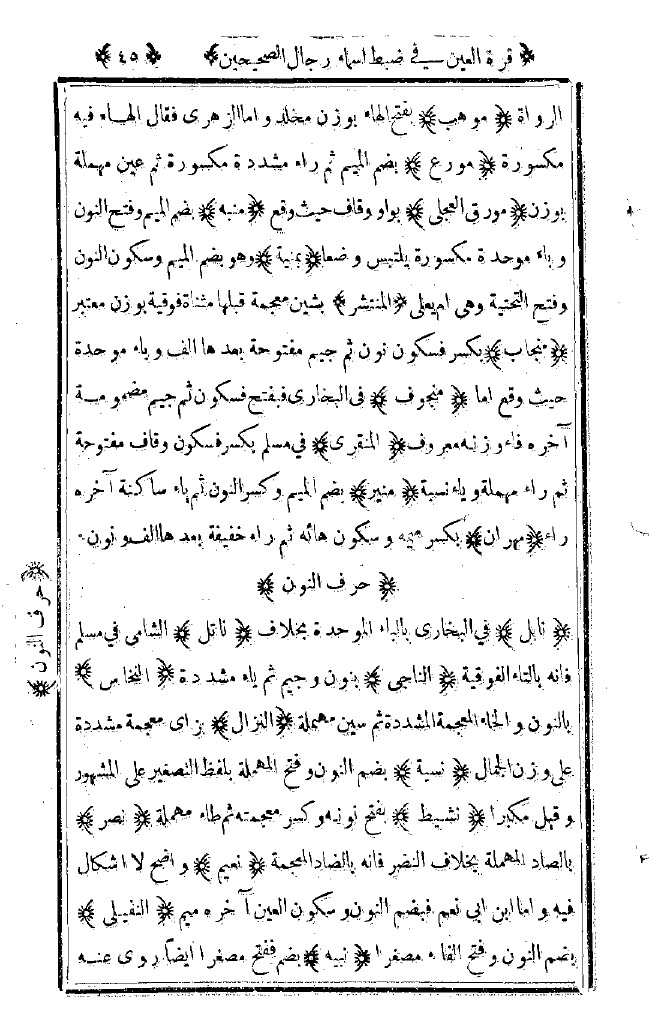 ﴿ قرة العين في ضبط اسماء رجال الصحيحين ﴾ ﴿ ٤٥ ﴾
الرواة ﴿ موهب ﴾ بفتح الهاء بوزن مخلد واما الزهرى فقال الهاء فيه
مكسورة ﴿ مورع ﴾ بضم الميم ثم راء مشددة مكسورة ثم عين مهملة
بوزن ﴿ مورق العجلى ﴾ بواو وقاف حيث وقع ﴿ منبه ﴾ بضم الميم وفتح النون
وباء موحدة مكسورة يلتبس وضعا ﴿ بمنية ﴾ وهو بضم الميم وسكون النون
وفتح التحتية وهى ام يعلى ﴿ المنتشر ﴾ بشين معجمة قبلها مثناة فوقية بوزن معتبر
﴿ منجاب ﴾ بكسر فسكون نون ثم جيم مفتوحة بعدها الف وباء موحدة
حيث وقع اما ﴿ منجوف ﴾ فى البخارى فبفتح فسكون ثم جيم مضمومة
آخره فاء وزنه معروف ﴿ المنقرى ﴾ في مسلم بكسر فسكون وقاف مفتوحة
ثم راء مهملة وياء نسبة ﴿ منير ﴾ بضم الميم وكسر النون ثم ياء ساكنة آخره
راء ﴿ مهران ﴾ بكسر ميمه وسكون هائه ثم راء خفيفة بعدها الف ونون
﴿ حرف النون ﴾
﴿ حرف النون ﴾
﴿ نابل ﴾ في البخارى بالباء الموحدة بخلاف ﴿ ناتل ﴾ الشامى في مسلم
فانه بالتاء الفوقية ﴿ الناجى ﴾ بنون وجيم ثم ياء مشددة ﴿ النخاس ﴾
بالنون والخاء المعجمة المشددة ثم سين مهملة ﴿ النزال ﴾ بزاى معجمة مشددة
على وزن الجمال ﴿ نسبة ﴾ بضم النون وفتح المهملة بلفظ التصغير على المشهور
وقيل مكبرا ﴿ نشيط ﴾ بفتح نونه وكسر معجمته ثم طاء مهملة ﴿ نصر ﴾
بالصاد المهملة بخلاف النضر فانه بالضاد المعجمة ﴿ نعيم ﴾ واضح لا اشكال
فيه واما ابن ابى نعم فبضم النون وسكون العين آخره ميم ﴿ النفيلى ﴾
بضم النون وفتح الفاء مصغرا ﴿ نبيه ﴾ بضم ففتح مصغرا ايضا روى عنه